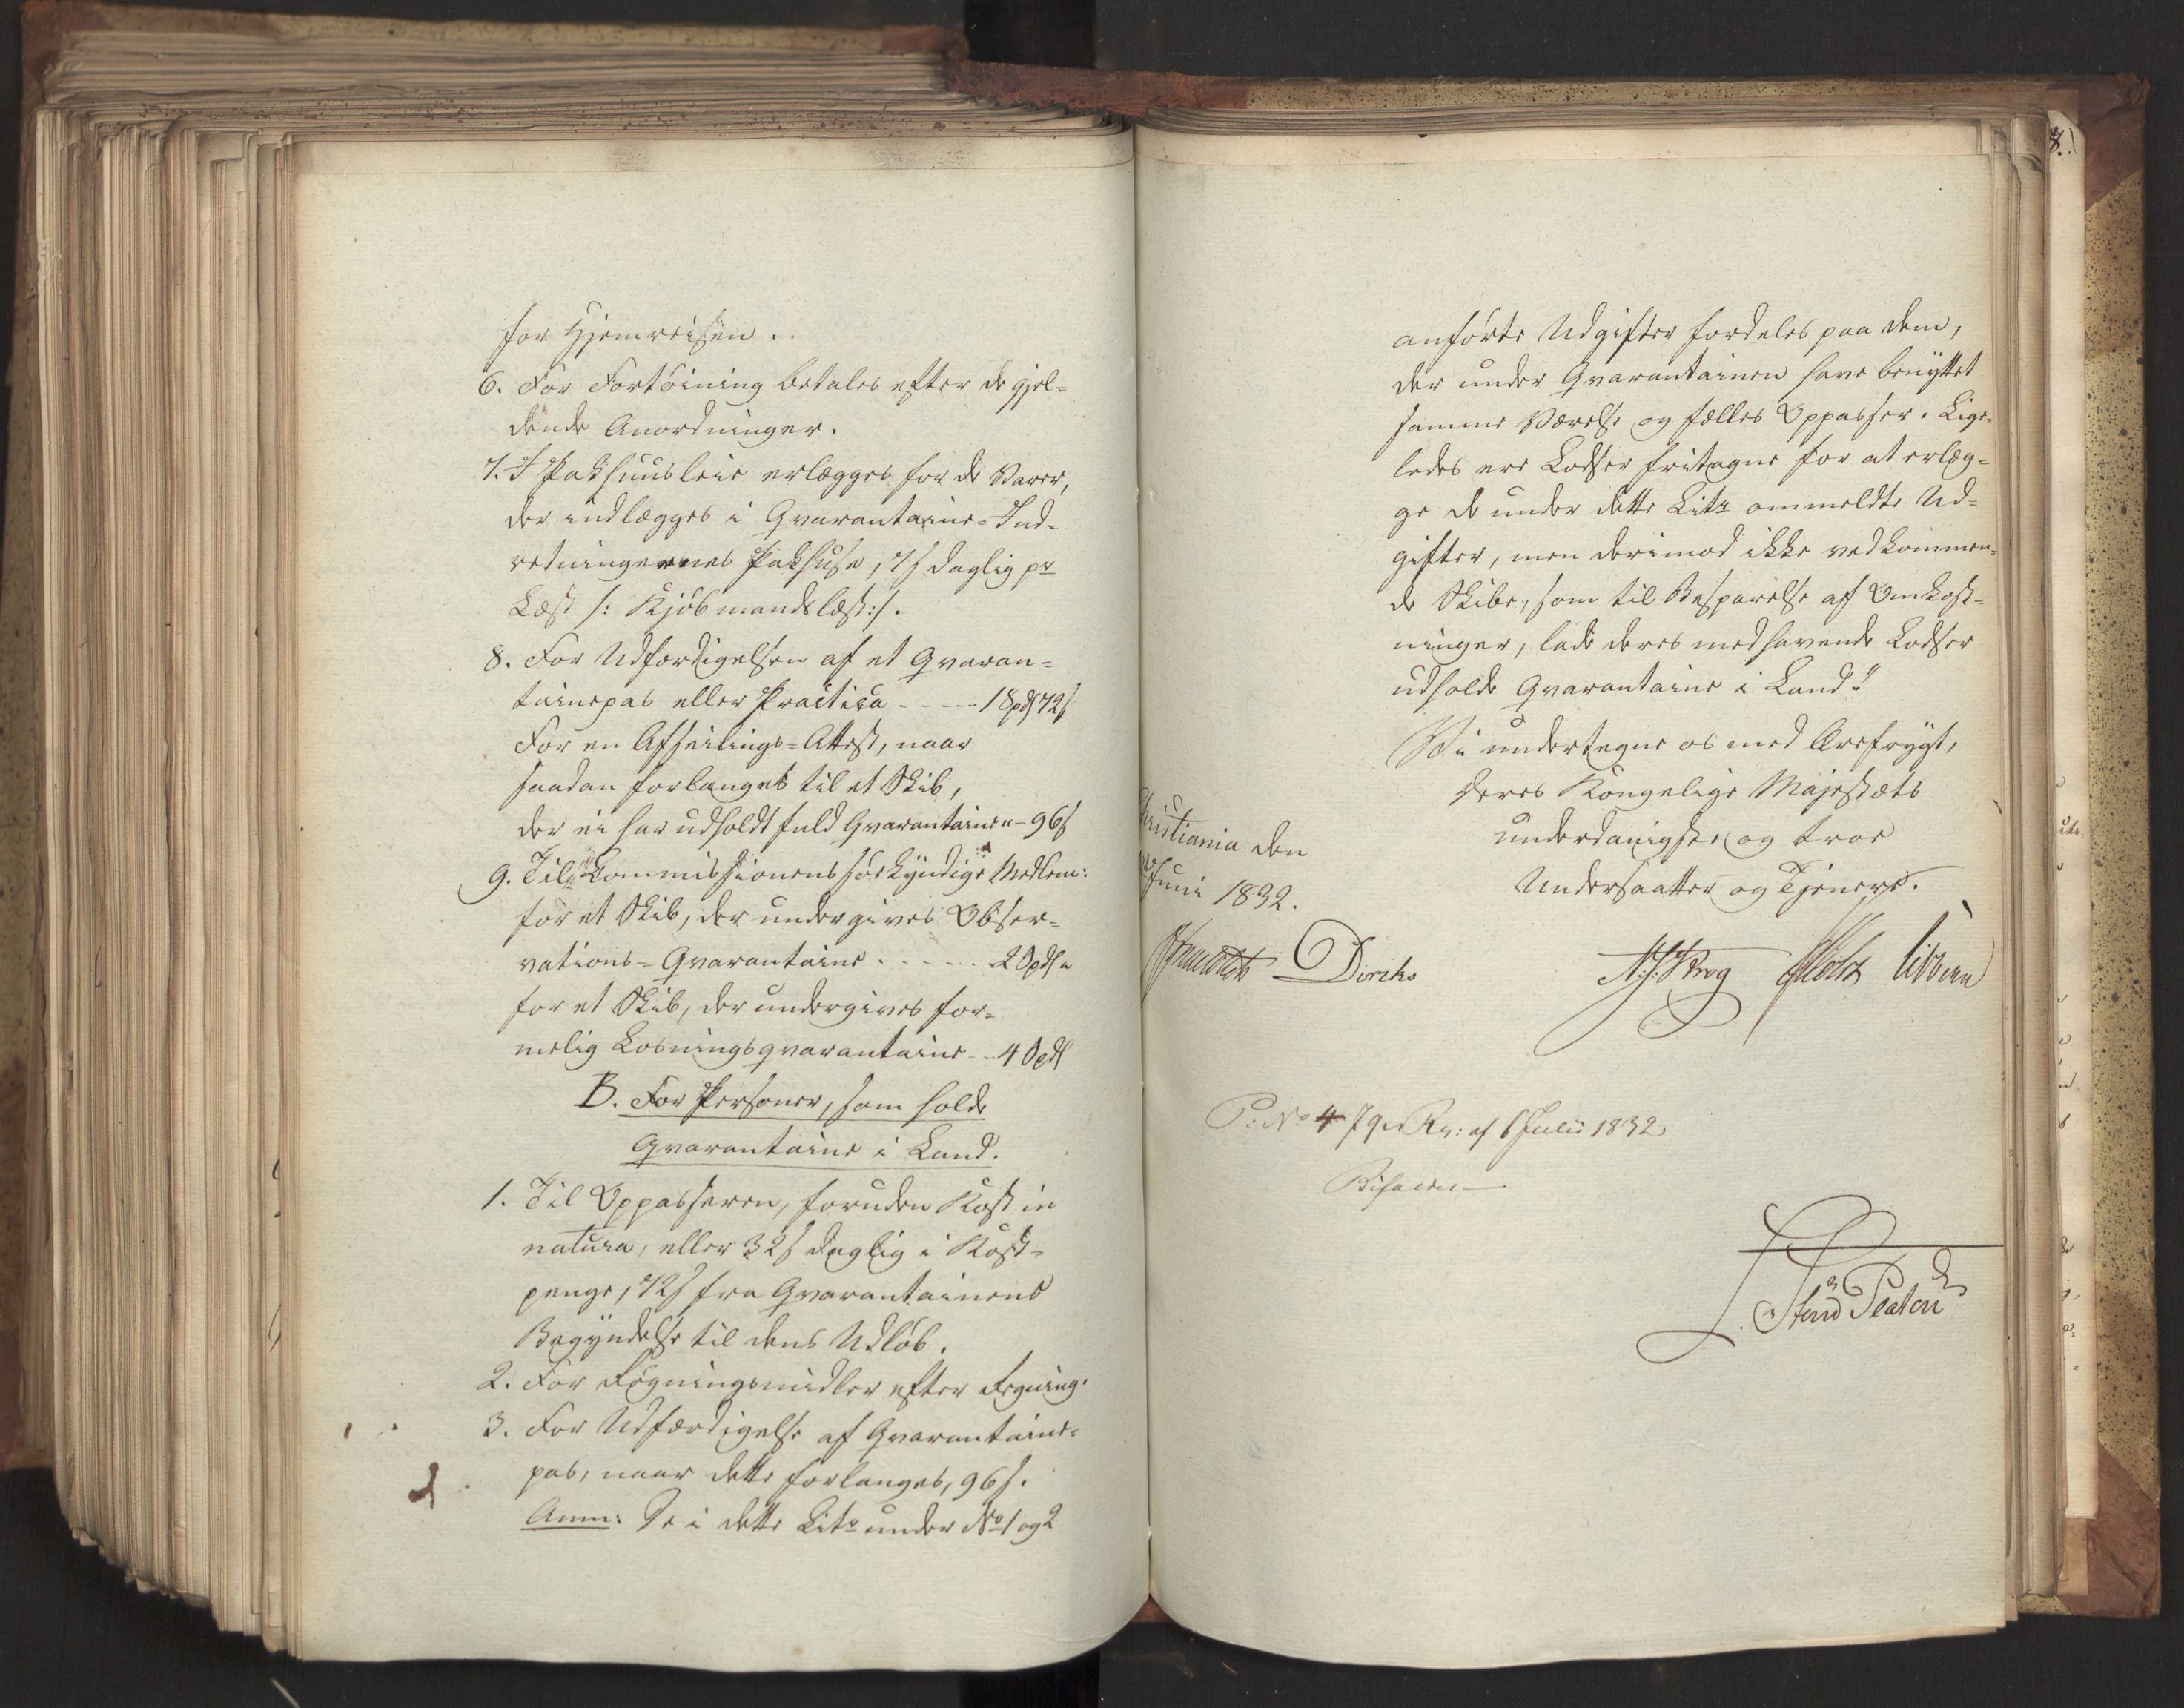 for Hjemreisen.
6. For Fortöining betales efter de gjel-
dende Anordninger.
7. I Pakhuusleie erlægges for de Varer,
der indlægges i Qvarantaine-Ind-
retningernes Pakhuse, 7 s daglig pr
Læst /: Kjöbmandslæst :/.
8. For Udfærdigelsen af et Qvaran-
tainepas eller Practica ..... 1 Spd 72 s
For en Afseilings-Attest, naar
saadan forlanges til et Skib,
der ei har udholdt fuld Qvarantaine - 96 s
9. Til Commissionens søekyndige Medlem:
for et Skib, der undergives Obser-
vations-Qvarantaine ...... 2 Spd
for et Skib, der undergives for-
melig Losningsqvarantaine - 4 Spd
B. For Personer, som holde
Qvarantaine i Land.
1. Til Oppasseren, foruden Kost in
natura, eller 32 s daglig i Kost-
penge, 72 s fra Qvarantainens
Begyndelse til dens Udlöb.
2. For Røgningsmidler efter Regning.
3. For Udfærdigelse af Qvarantaine-
pas, naar dette forlanges, 96 s.
Anm: De i dette Litr under No 1 og 2
anförte Udgifter fordeles paa dem,
der under Qvarantainen have benyttet
samme Værelse og fælles Oppasser. Lige-
ledes ere Lodser fritagne for at erlæg-
ge de under dette Litr ommeldte Ud-
gifter, men derimod ikke vedkommen-
de Skibe, som til Besparelse af Omkost-
ninger, lade deres medhavende Lodser
udholde Qvarantaine i Land."
Vi undertegne os med Ærefrygt,
Deres Kongelige Majestæts
underdanigste og troe
Undersaatter og Tjenere.
Christiania den
Juni 1832.
Diriks
Krog Holst Sibbern
P: No 4 79 Rs: af 6 Julii 1832
Bifaldes